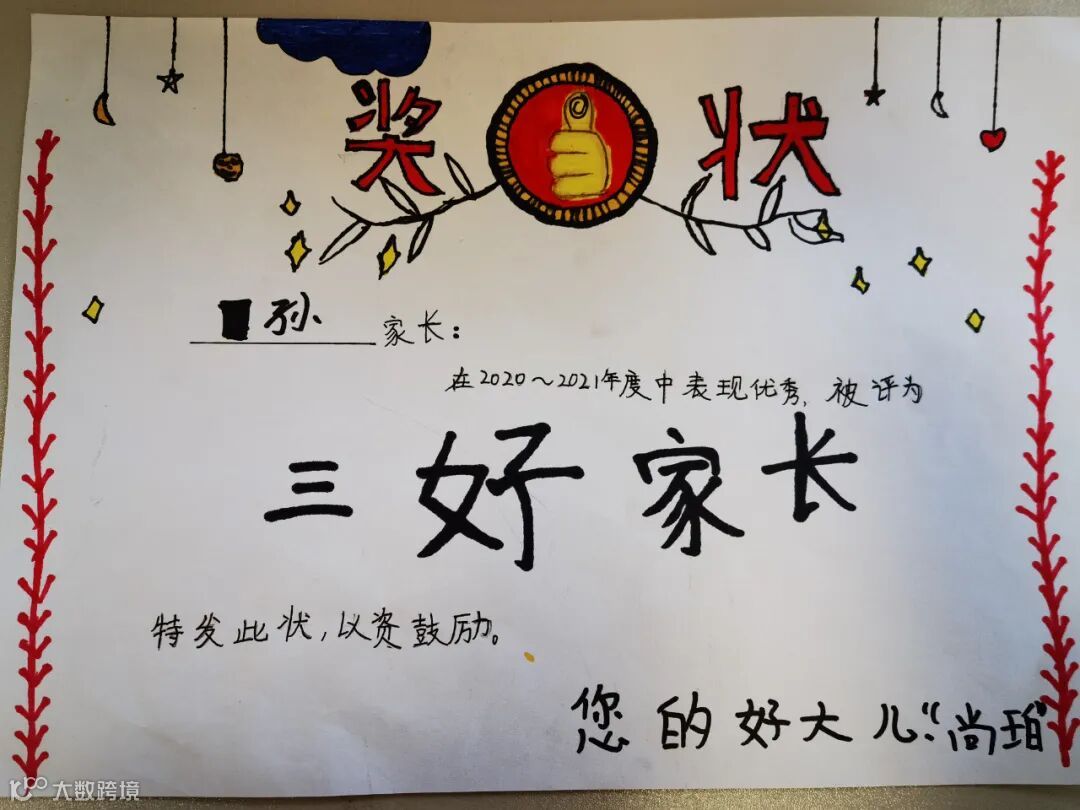 奖状
孙 家长:
在2020～2021年度中表现优秀,被评为
三好家长
特发此状,以资鼓励。
您的好大儿:“尚珀”
大数跨境